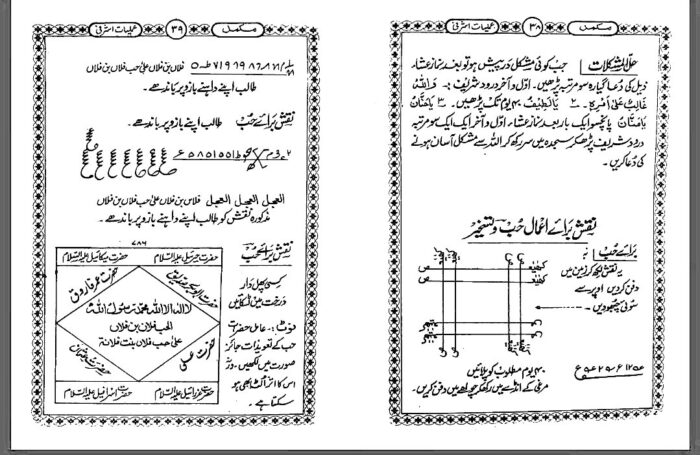 مکمل
۳۸
عملیات اشرفی
حل المشکلات جب کوئی مشکل درپیش ہو تو بعد نماز عشاء
ذیل کی دعا گیارہ سو مرتبہ پڑھیں۔ اول و آخر درود شریف :۔ وَاللهُ
غَالِبٌ عَلیٰ اَمْرِہٖ ۔ ۲ یا لطیف ۴۰ یوم تک پڑھیں۔ ۳ یَا حَنَّانُ
یَا مَنَّانُ پانچسو ایک بار بعد نماز عشاء۔ اول و آخر ایک ایک سو مرتبہ
درود شریف پڑھکر سجدہ میں سر رکھ کر اللہ سے مشکل آسان ہونے
کی دعا کریں۔
نقش برائے اعمال حُب و تسخیر
برائے حُب
یہ نقش لکھ کر زمین میں
دفن کر دیں اوپر سے
سوئی چبھو دیں
۴۰ یوم مطلوب کو پلائیں
مرغی کے انڈے میں رکھ کر چولھے میں دفن کریں۔
مکمل
۳۹
عملیات اشرفی
فلاں بن فلاں علیٰ حب فلاں بن فلاں
طالب اپنے داہنے بازو پر باندھے۔
نقش برائے حُب طالب اپنے بازو پر باندھے۔
العجل العجل العجل فلاں بن فلاں علیٰ حب فلاں بن فلاں
مذکورہ نقش کو طالب اپنے داہنے بازو پر باندھے۔
نقش برائے حُب
کسی پھل دار
درخت میں لٹکائیں
نوٹ:۔ عامل حضرات
حب کے تعویذات جائز
صورت میں لکھیں۔ ورنہ
اس کا اثر الٹا بھی ہو
سکتا ہے۔
۷۸۶
حضرت جبرئیل علیہ السلام
حضرت میکائیل علیہ السلام
حضرت ابوبکر صدیق
حضرت عمر فاروق
لا الہ الا اللہ محمد رسول اللہ
الحب فلاں بن فلاں
علیٰ حب فلاں بنت فلانۃ
حضرت عثمان
حضرت عزرائیل علیہ السلام
حضرت اسرافیل علیہ السلام